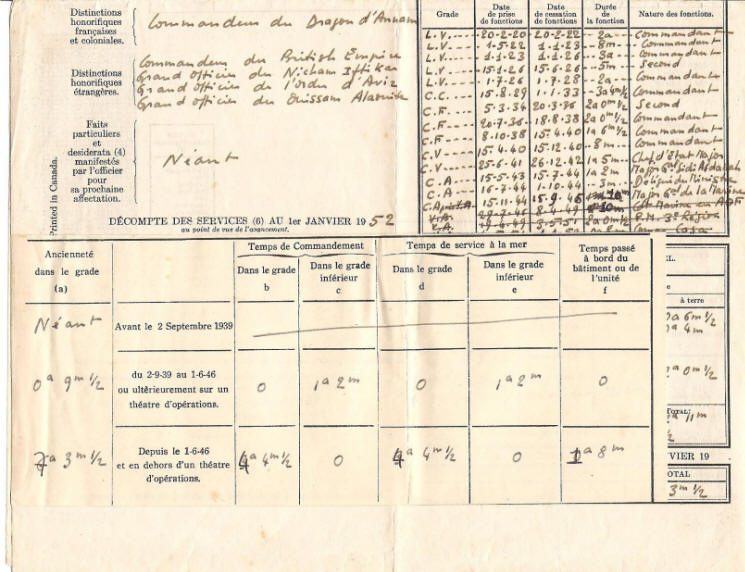 Distinctions
honorifiques
françaises
et coloniales.
Commandeur du Dragon d'Annam
Distinctions
honorifiques
étrangères.
Commandeur du British Empire
Grand officier du Nicham Iftikar
Grand officier de l'Ordre d'Aviz
Grand officier du Ouissam Alaouite
Faits
particuliers
et
desiderata (4)
manifestés
par l'officier
pour
sa prochaine
affectation.
Néant
Printed in Canada.
Grade Date de prise de fonctions Date de cessation de fonctions Durée de la fonction Nature des fonctions.
L.V. 20-2-20 20-2-22 2a Commandant
L.V. 1-5-22 1-1-23 8m Commandant
L.V. 1-1-23 1-1-26 3a Commandant
L.V. 15-1-26 15-6-26 5m Second
L.V. 1-7-26 1-7-28 2a Commandant
C.C. 15-8-29 1-1-33 3a 4m½ Commandant
C.F. 5-3-34 20-3-36 2a 0m½ Second
C.F. 20-7-36 18-8-38 2a 0m½ Commandant
C.F. 8-10-38 15-4-40 1a 6m½ Commandant
C.V. 15-4-40 15-12-40 8m Commandant
C.V. 25-6-41 26-12-42 1a 5m Chef d'Etat Major
C.A. 15-5-43 15-7-44 1a 2m Major Gal Sidi Abdallah
C.A. 16-7-44 1-10-44 3m Délégué du Ministre
15-11-44 15-9-46 Major Gal de la Marine
V.A. 29-7-46 8-4-49 Marine en AOF
V.A. 19-4-49 3-5-51 2a 0m½ P.M. 3e Région
DÉCOMPTE DES SERVICES (6) AU 1er JANVIER 1952
au point de vue de l'avancement.
Ancienneté
dans le grade
(a)
Temps de Commandement
Dans le grade
b
Dans le grade
inférieur
c
Temps de service à la mer
Dans le grade
d
Dans le grade
inférieur
e
Temps passé
à bord du
bâtiment ou de
l'unité
f
Néant Avant le 2 Septembre 1939
0a 9m½ du 2-9-39 au 1-6-46
ou ultérieurement sur un
théatre d'opérations.
0 1a 2m 0 1a 2m 0
7a 3m½ Depuis le 1-6-46
et en dehors d'un théatre
d'opérations.
4a 4m½ 0 4a 4m½ 0 1a 8m
à terre
6m½
4m
0m½
TOTAL:
11m
VIER 19
OTAL
3m½